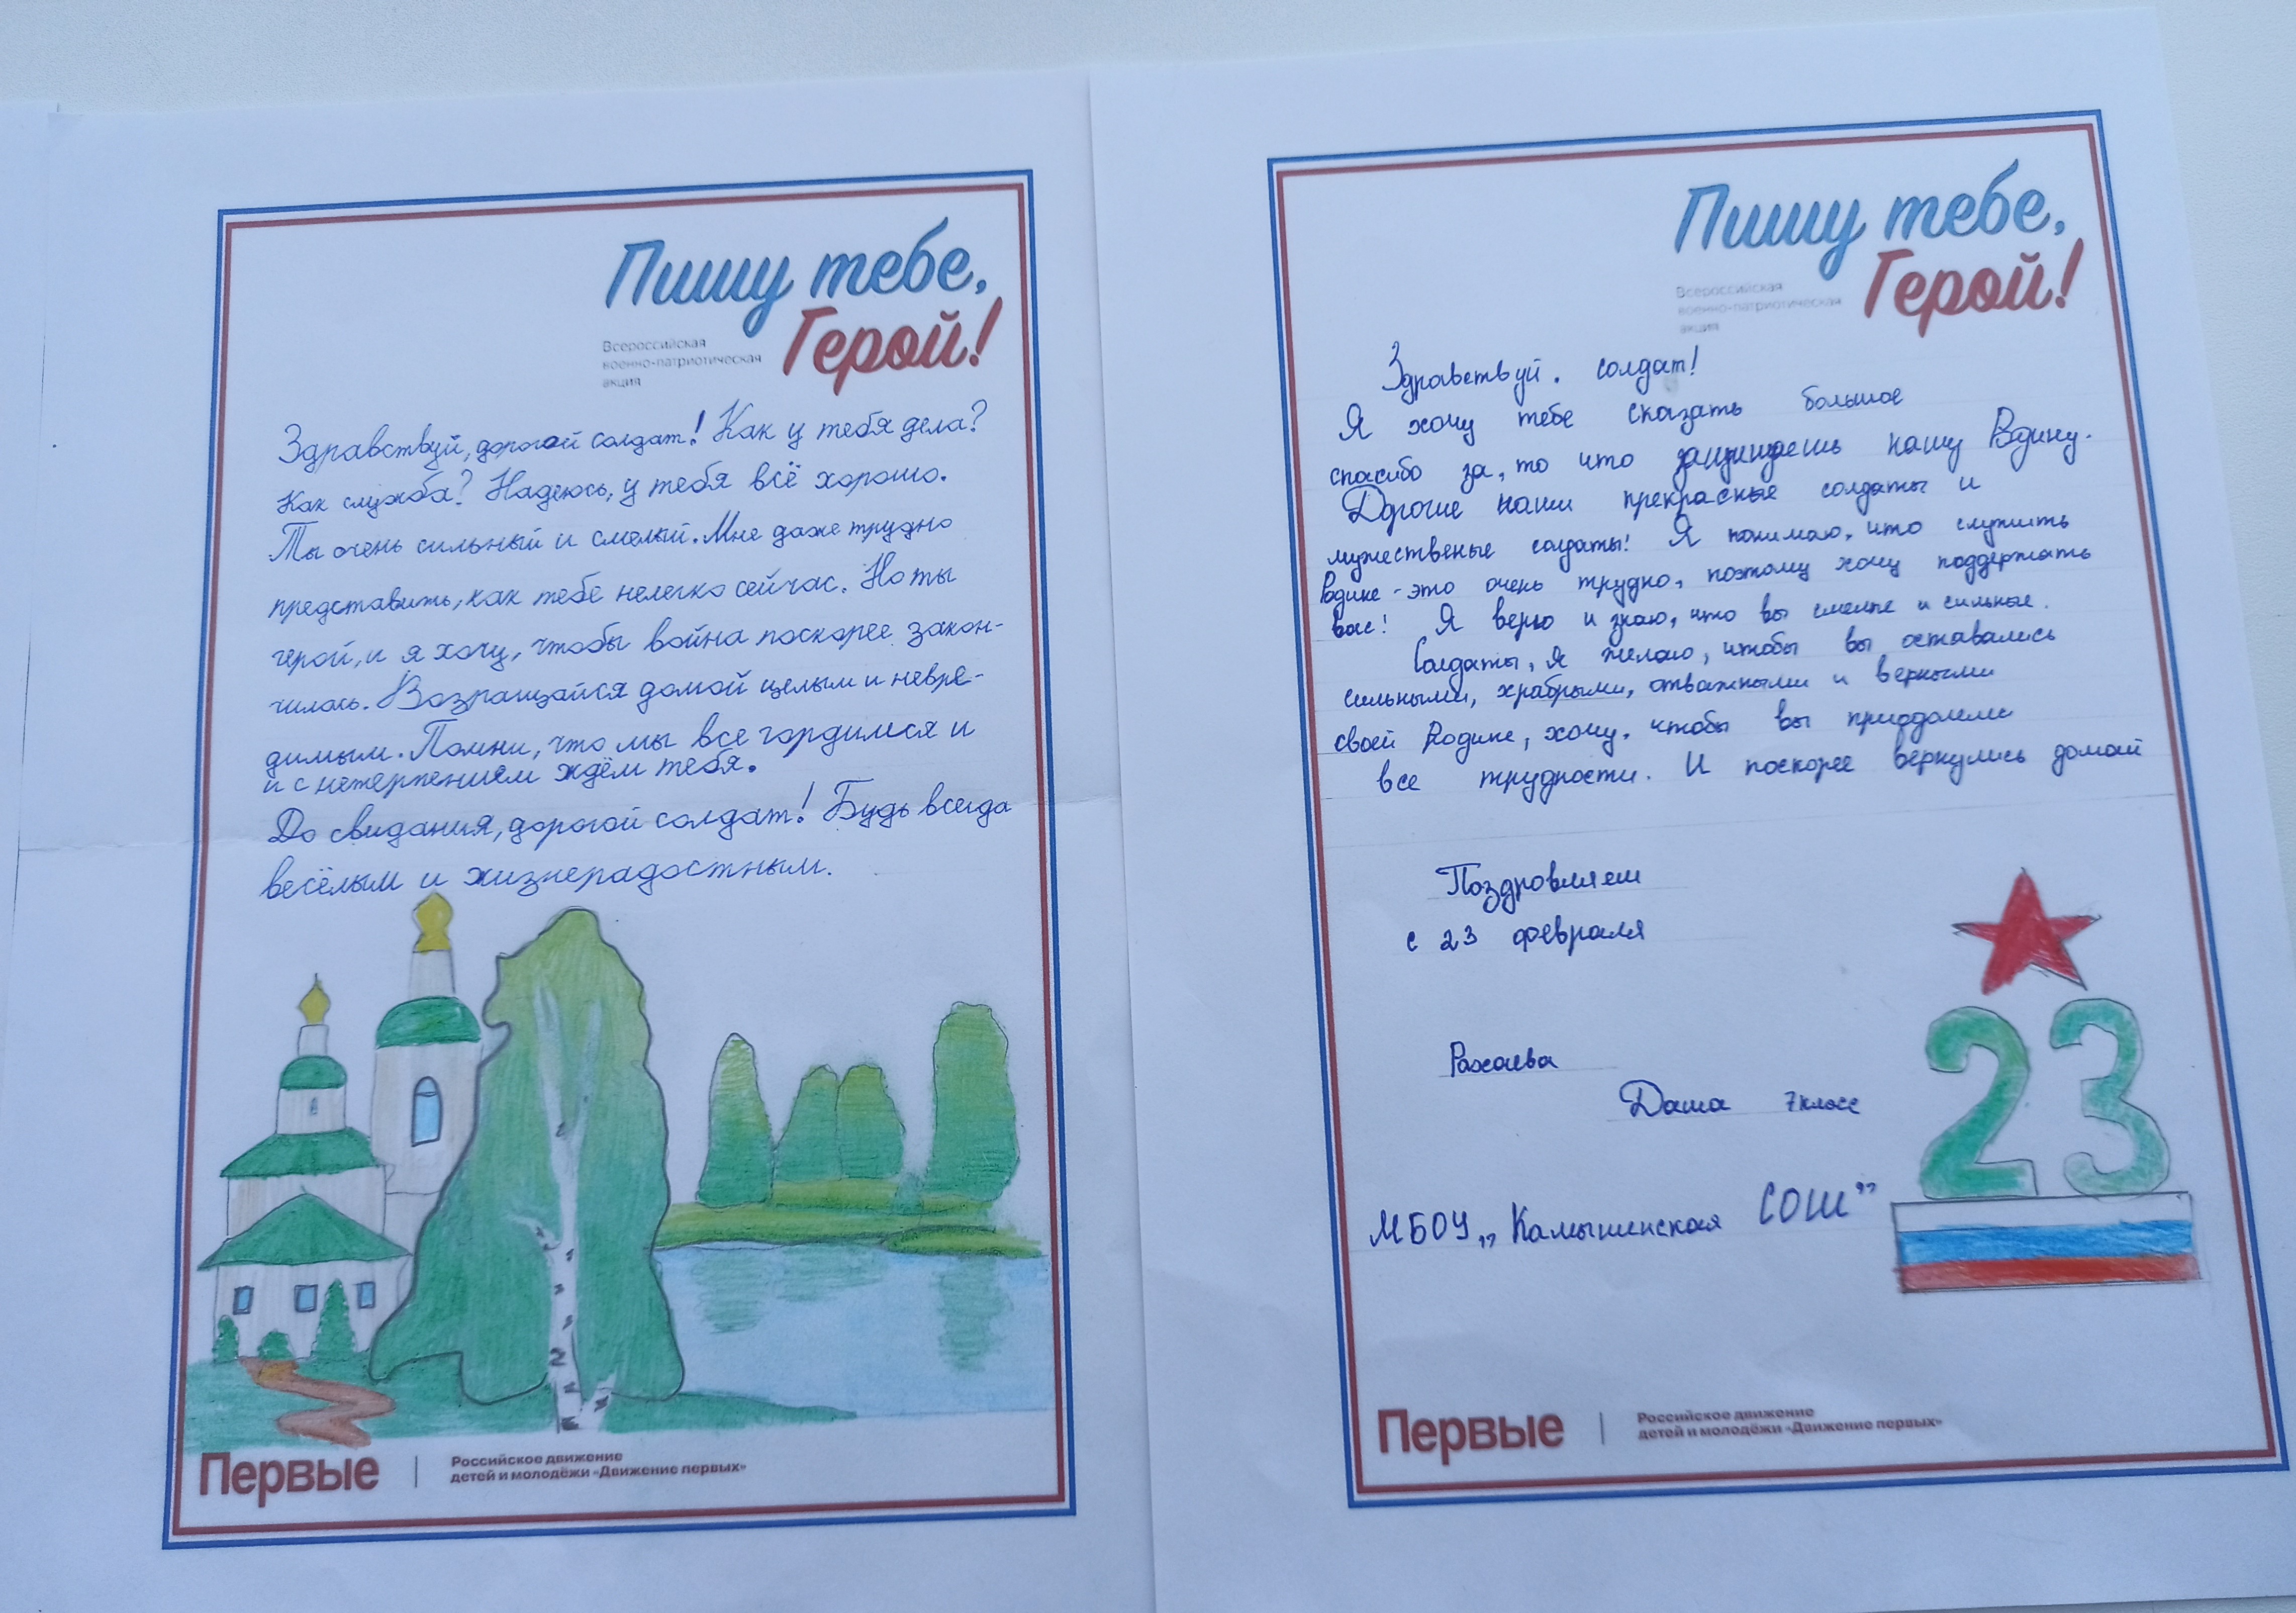 Пишу тебе,
Герой!
Всероссийская
военно-патриотическая
акция
Здравствуй, дорогой солдат! Как у тебя дела?
Как служба? Надеюсь, у тебя всё хорошо.
Ты очень сильный и смелый. Мне даже трудно
представить, как тебе нелегко сейчас. Но ты
герой, и я хочу, чтобы война поскорее закон-
чилась. Возращайся домой целым и невре-
димым. Помни, что мы все гордимся и
и с нетерпением ждём тебя.
До свидания, дорогой солдат! Будь всегда
весёлым и жизнерадостным.
Первые
Российское движение
детей и молодёжи «Движение первых»
Пишу тебе,
Герой!
Всероссийская
военно-патриотическая
акция
Здравствуй. солдат!
Я хочу тебе сказать большое
спасибо за, то что защищаешь нашу Родину.
Дорогие наши прекрасные солдаты и
мужественые солдаты! Я понимаю, что служить
Родине - это очень трудно, поэтому хочу поддержать
вас! Я верю и знаю, что вы смелые и сильные.
Солдаты, я желаю, чтобы вы оставались
сильными, храбрыми, отважными и верными
своей Родине, хочу, чтобы вы приодолели
все трудности. И поскорее вернулись домой
Поздровляем
с 23 февраля
Даша 7 класс
МБОУ „Камышинская СОШ"
23
Первые
Российское движение
детей и молодёжи «Движение первых»